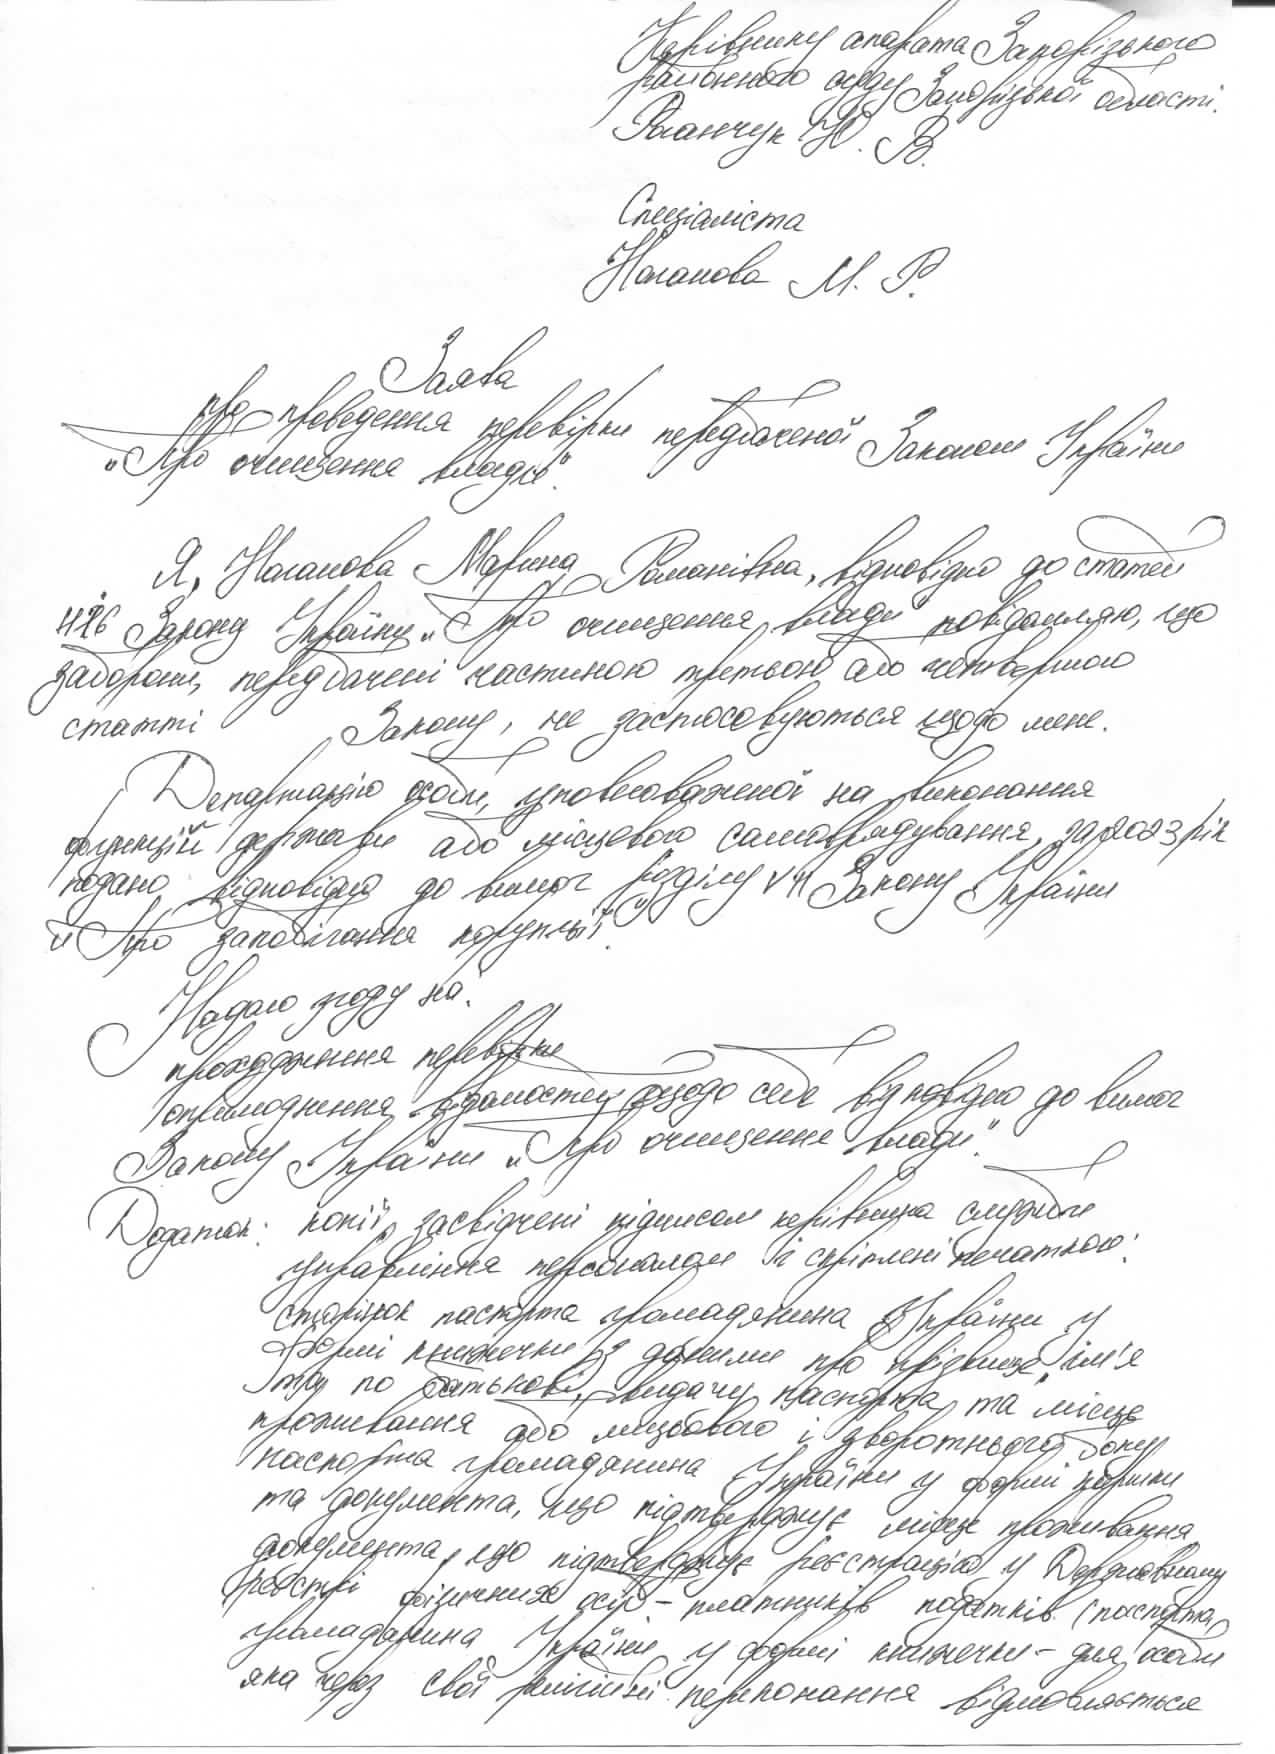 Керівнику апарата Запорізького
районного суду Запорізької області.
Романчук Ю. В.
Спеціаліста
Наганова М. Р.
Заява
про проведення перевірки передбаченої Законом України
"Про очищення влади".
Я, Наганова Марина Романівна, відповідно до статей
Закону України "Про очищення влади" повідомляю, що
заборони, передбачені частиною третьою або четвертою
статті Закону, не застосовуються щодо мене.
Декларацію особи, уповноваженої на виконання
функцій держави або місцевого самоврядування, за 2023 рік
подано відповідно до вимог розділу VII Закону України
"Про запобігання корупції".
Надаю згоду на:
проходження перевірки
оприлюднення відомостей щодо себе відповідно до вимог
Закону України "Про очищення влади".
Додаток: копії, засвідчені підписом керівника служби
управління персоналом і скріплені печаткою:
сторінок паспорта громадянина України у
формі книжечки з даними про прізвище, ім'я
та по батькові, видачу паспорта та місце
проживання або лицьового і зворотнього боку
паспорта громадянина України у формі картки
та документа, що підтверджує місце проживання,
документа, що підтверджує реєстрацію у Державному
реєстрі фізичних осіб - платників податків (паспорта
громадянина України у формі книжечки - для особи
яка через свої релігійні переконання відмовляється